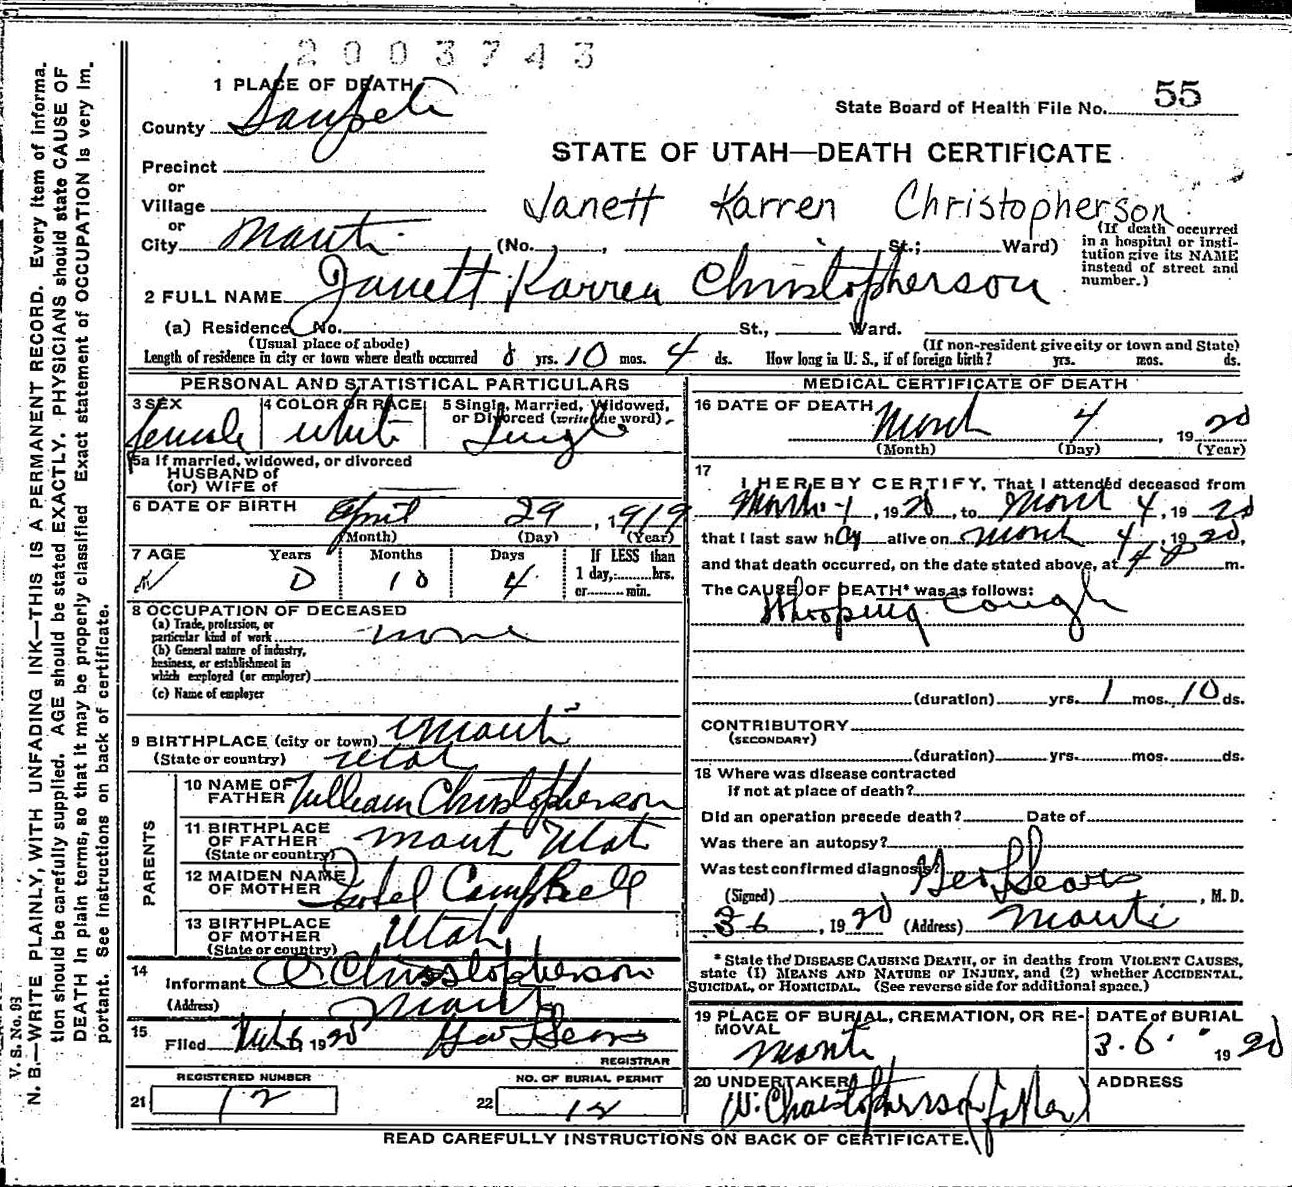 2003743
1 PLACE OF DEATH
State Board of Health File No. 55
County Sanpete
STATE OF UTAH—DEATH CERTIFICATE
Precinct
or
Village
Janett Karren Christopherson
or
City Manti (No. , St.; Ward)
(If death occurred
in a hospital or insti-
tution give its NAME
instead of street and
number.)
2 FULL NAME Janett Karren Christopherson
(a) Residence No. St., Ward.
(Usual place of abode) (If non-resident give city or town and State)
Length of residence in city or town where death occurred yrs. 10 mos. 4 ds. How long in U. S., if of foreign birth? yrs. mos. ds.
PERSONAL AND STATISTICAL PARTICULARS
3 SEX female
4 COLOR OR RACE White
5 Single, Married, Widowed,
or Divorced (write the word)
Single
5a If married, widowed, or divorced
HUSBAND of
(or) WIFE of
6 DATE OF BIRTH April 29, 1919
(Month) (Day) (Year)
7 AGE Years Months Days If LESS than
0 10 4 1 day, hrs.
or min.
8 OCCUPATION OF DECEASED
(a) Trade, profession, or
particular kind of work none
(b) General nature of industry,
business, or establishment in
which employed (or employer)
(c) Name of employer
9 BIRTHPLACE (city or town) Manti
(State or country) Utah
PARENTS
10 NAME OF
FATHER William Christopherson
11 BIRTHPLACE
OF FATHER Manti Utah
(State or country)
12 MAIDEN NAME
OF MOTHER Campbell
13 BIRTHPLACE
OF MOTHER Utah
(State or country)
14
Informant Christopherson
(Address) Manti
15
Filed 6, 1920 Geo Sears
REGISTRAR
REGISTERED NUMBER
21 12
NO. OF BURIAL PERMIT
22 12
MEDICAL CERTIFICATE OF DEATH
16 DATE OF DEATH March 4, 1920
(Month) (Day) (Year)
17
I HEREBY CERTIFY, That I attended deceased from
March 1, 1920, to March 4, 1920
that I last saw h alive on March 4, 1920,
and that death occurred, on the date stated above, at m.
The CAUSE OF DEATH* was as follows:
Whooping Cough
(duration) yrs. 1 mos. 10 ds.
CONTRIBUTORY
(SECONDARY)
(duration) yrs. mos. ds.
18 Where was disease contracted
If not at place of death?
Did an operation precede death? Date of
Was there an autopsy?
Was test confirmed diagnosis?
(Signed) Geo Sears, M. D.
3-6, 1920 (Address) Manti
* State the DISEASE CAUSING DEATH, or in deaths from VIOLENT CAUSES,
state (1) MEANS AND NATURE OF INJURY, and (2) whether ACCIDENTAL,
SUICIDAL, or HOMICIDAL. (See reverse side for additional space.)
19 PLACE OF BURIAL, CREMATION, OR RE-
MOVAL
Manti
DATE of BURIAL
3. 6. 1920
20 UNDERTAKER
W. Christopherson (father)
ADDRESS
READ CAREFULLY INSTRUCTIONS ON BACK OF CERTIFICATE.
V. S. No. 93
N. B.—WRITE PLAINLY, WITH UNFADING INK—THIS IS A PERMANENT RECORD. Every item of informa.
tion should be carefully supplied. AGE should be stated EXACTLY. PHYSICIANS should state CAUSE OF
DEATH in plain terms, so that it may be properly classified Exact statement of OCCUPATION is very im.
portant. See instructions on back of certificate.